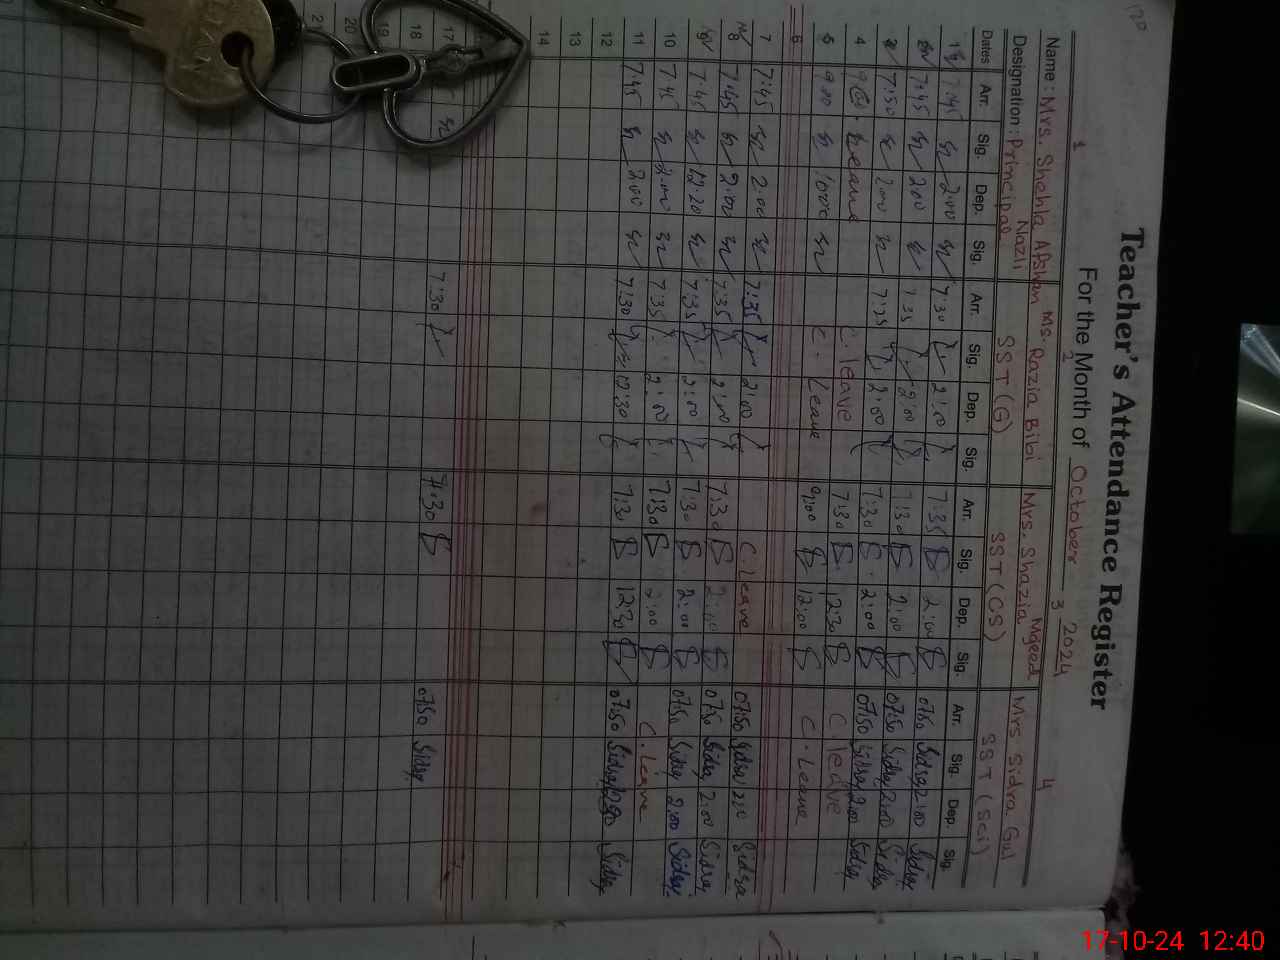 Teacher's Attendance Register
For the Month of October 2024
1 2 3 4
Name: Mrs. Shehla Afshan Nazli Ms. Razia Bibi Mrs. Shazia Majeed Mrs Sidra Gul
Designation: Principal SST (G) SST (CS) SST (Sci)
Dates Arr. Sig. Dep. Sig. Arr. Sig. Dep. Sig. Arr. Sig. Dep. Sig. Arr. Sig. Dep. Sig.
1 7:45 2:00 7:30 2:00 7:35 2:00 0750 Sidra 2:00 Sidra
7:45 2:00 7:35 2:00 7:30 2:00 0750 Sidra 2:00 Sidra
7:50 2:00 7:25 2:00 7:30 2:00 0750 Sidra 2:00 Sidra
4 Leave C. leave 7:30 12:30 C. leave
5 9:00 C. Leave 9:00 12:00 C. Leave
6
7 7:45 2:00 7:35 2:00 C. Leave 0750 Sidra 1220 Sidra
8 7:45 2:00 7:35 2:00 7:30 2:00 0750 Sidra 2:00 Sidra
7:45 12:20 7:35 2:00 7:30 2:00 0750 Sidra 2:00 Sidra
10 7:45 2:00 7:35 2:00 7:30 2:00 C. Leave
11 7:45 2:00 7:30 12:30 7:30 12:30 0750 Sidra 1230 Sidra
12
13
14
17 7:30 7:30 0750 Sidra
18
19
20
21
17-10-24 12:40